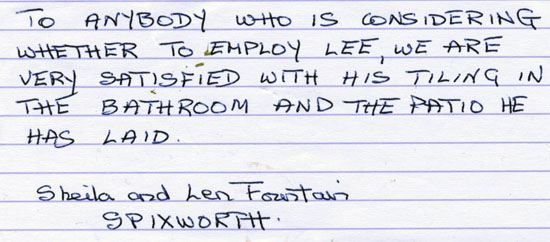 TO ANYBODY WHO IS CONSIDERING
WHETHER TO EMPLOY LEE, WE ARE
VERY SATISFIED WITH HIS TILING IN
THE BATHROOM AND THE PATIO HE
HAS LAID.
Sheila and Len Fountain
SPIXWORTH.